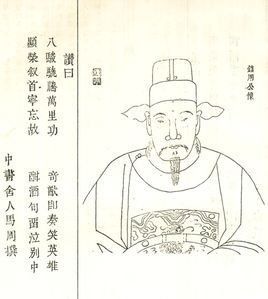 公像
讚曰
八駿馳騰萬里功 奇猷即奏笑英雄
顯榮叙首寧忘故 酒句西泣別中
中書舍人馬周撰